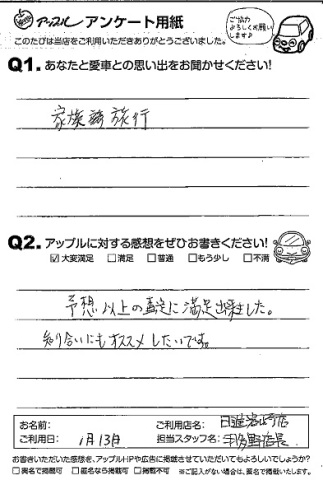 アップル アンケート用紙
このたびは当店をご利用いただきありがとうございました。
ご協力
よろしくお願い
します♪
Q1. あなたと愛車との思い出をお聞かせください!
家族 旅行
Q2. アップルに対する感想をぜひお書きください!
☑大変満足 □満足 □普通 □もう少し □不満
予想以上の査定に満足出来ました。
知り合いにもオススメしたいです。
お名前:
ご利用店名: 日進岩崎店
ご利用日: 1月13日
担当スタッフ名: 店長
お書きいただいた感想を、アップルHPや広告に掲載させていただいてもよろしいでしょうか?
□実名で掲載可 □匿名なら掲載可 □掲載不可 ※ご記入がない場合は、匿名で掲載いたします。